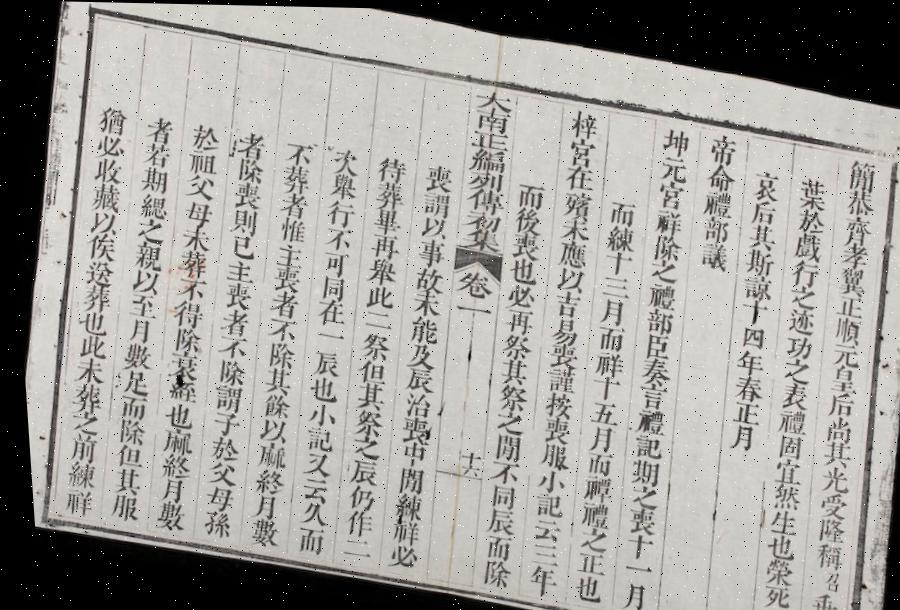 簡恭齊孝翼正順元皇后尚其光受隆稱
葉於戲行之迹功之表禮固宜然生也榮死
哀后其斯謀十四年春正月
帝命禮部議
坤元宮祥除之禮部臣奏言禮記期之喪十一月
而練十三月而祥十五月而禫禮之正也
梓宮在殯未應以吉易喪謹按喪服小記云三年
而後喪也必再祭其祭之間不同辰而除
大南正編列傳初集 卷一 十六
喪謂以事故未能及辰治喪中間練祥必
待葬畢再舉此二祭但其祭之辰仍作二
次舉行不可同在一辰也小記又云久而
不葬者惟主喪者不除其餘以麻終月數
者除喪則已主喪者不除謂子於父母孫
於祖父母未葬不得除衰絰也麻終月數
者若期緦之親以至月數足而除但其服
猶必收藏以俟送葬也此未葬之前練祥